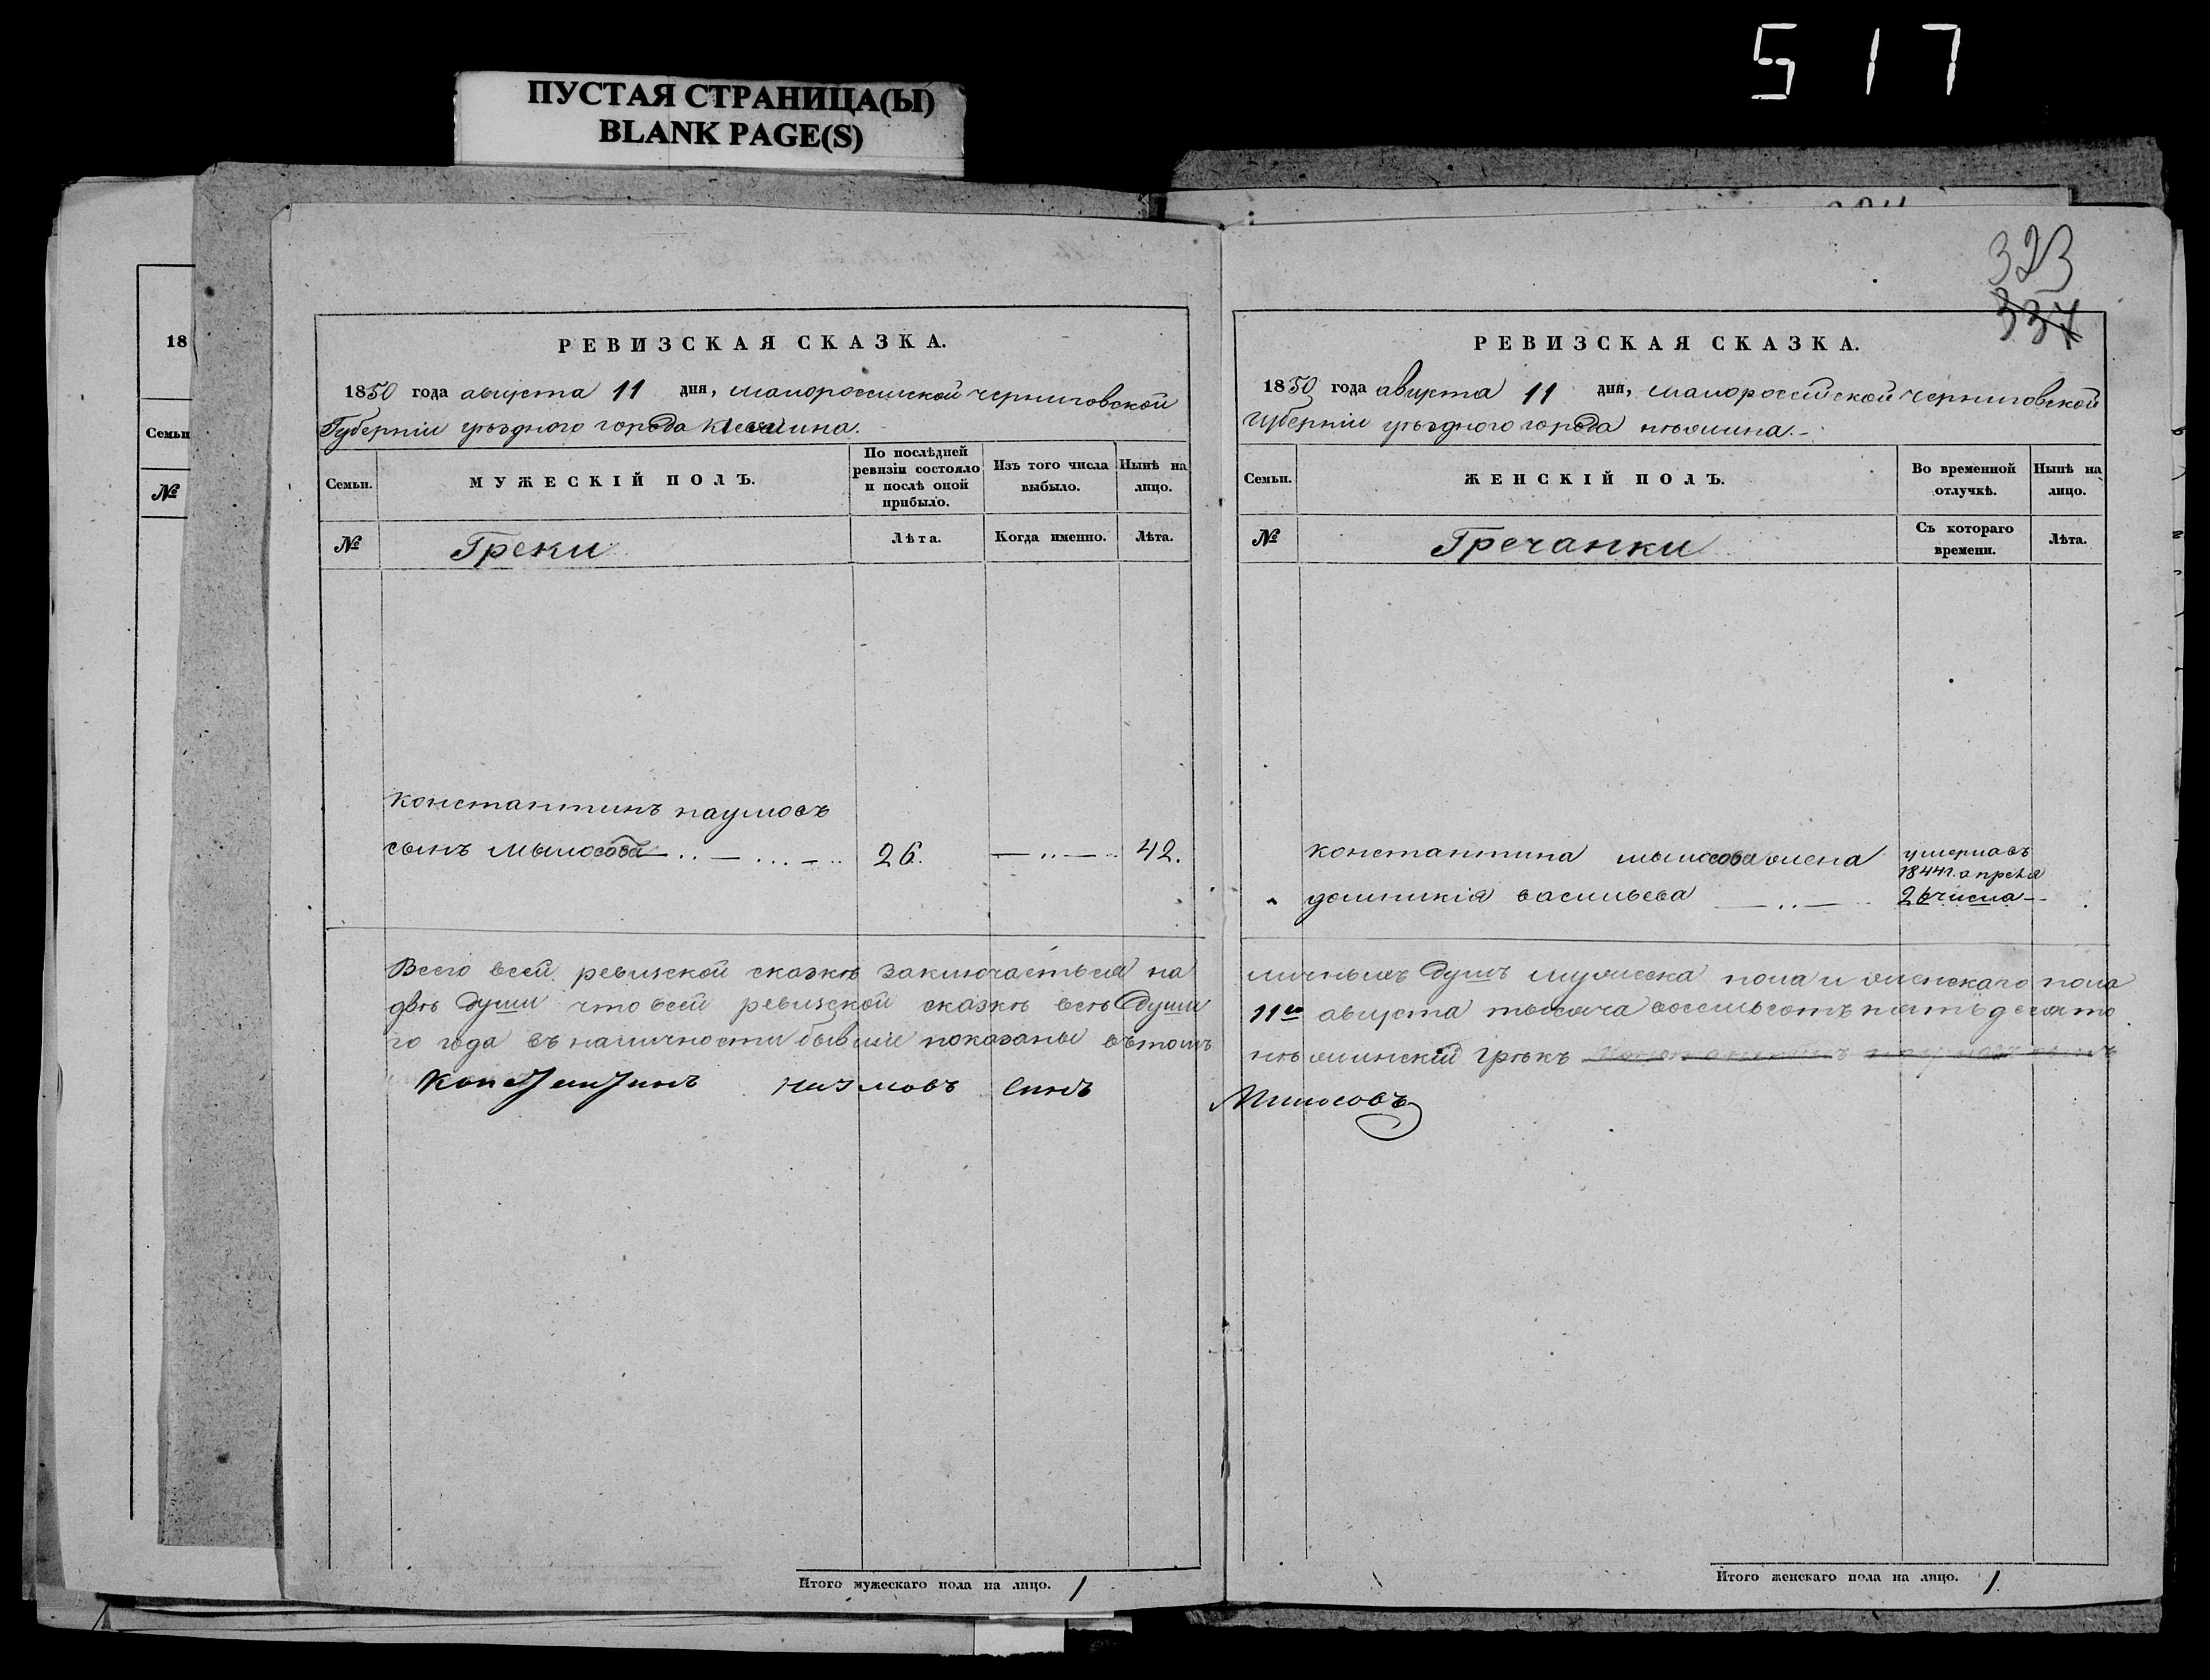 517
ПУСТАЯ СТРАНИЦА(Ы)
BLANK PAGE(S)
18
Семьи
№
РЕВИЗСКАЯ СКАЗКА.
1850 года августа 11 дня, малороссийской черниговской
Губерніи уѣздного города
Семьи.
МУЖЕСКІЙ ПОЛЪ.
По послѣдней ревизіи состояло и послѣ оной прибыло.
Изъ того числа выбыло.
Нынѣ на лицо.
№
Греки
Лѣта.
Когда именно.
Лѣта.
константинъ наумовъ
сынъ 26. 42.
Всего всей ревизской сказкѣ заключаеться на
двѣ души что всей ревизской сказкѣ всѣ души
го года въ наличности бывшіе показаны вътомъ
Константинъ наумовъ синъ
Итого мужескаго пола на лицо. 1
323
334
РЕВИЗСКАЯ СКАЗКА.
1850 года августа 11 дня, малороссійской черниговской
губерніи уѣздного города нѣжина.
Семьи.
ЖЕНСКІЙ ПОЛЪ.
Во временной отлучкѣ.
Нынѣ на лицо.
№
Гречанки
Съ котораго времени.
Лѣта.
константина жена умерла въ
1844г. апреля
домникія васильева 26 числа
личныхъ душъ мужеска пола и женскаго пола
11го августа тысяча восемьсотъ пятьдесято
нѣжинскій грѣкъ
Итого женскаго пола на лицо. 1